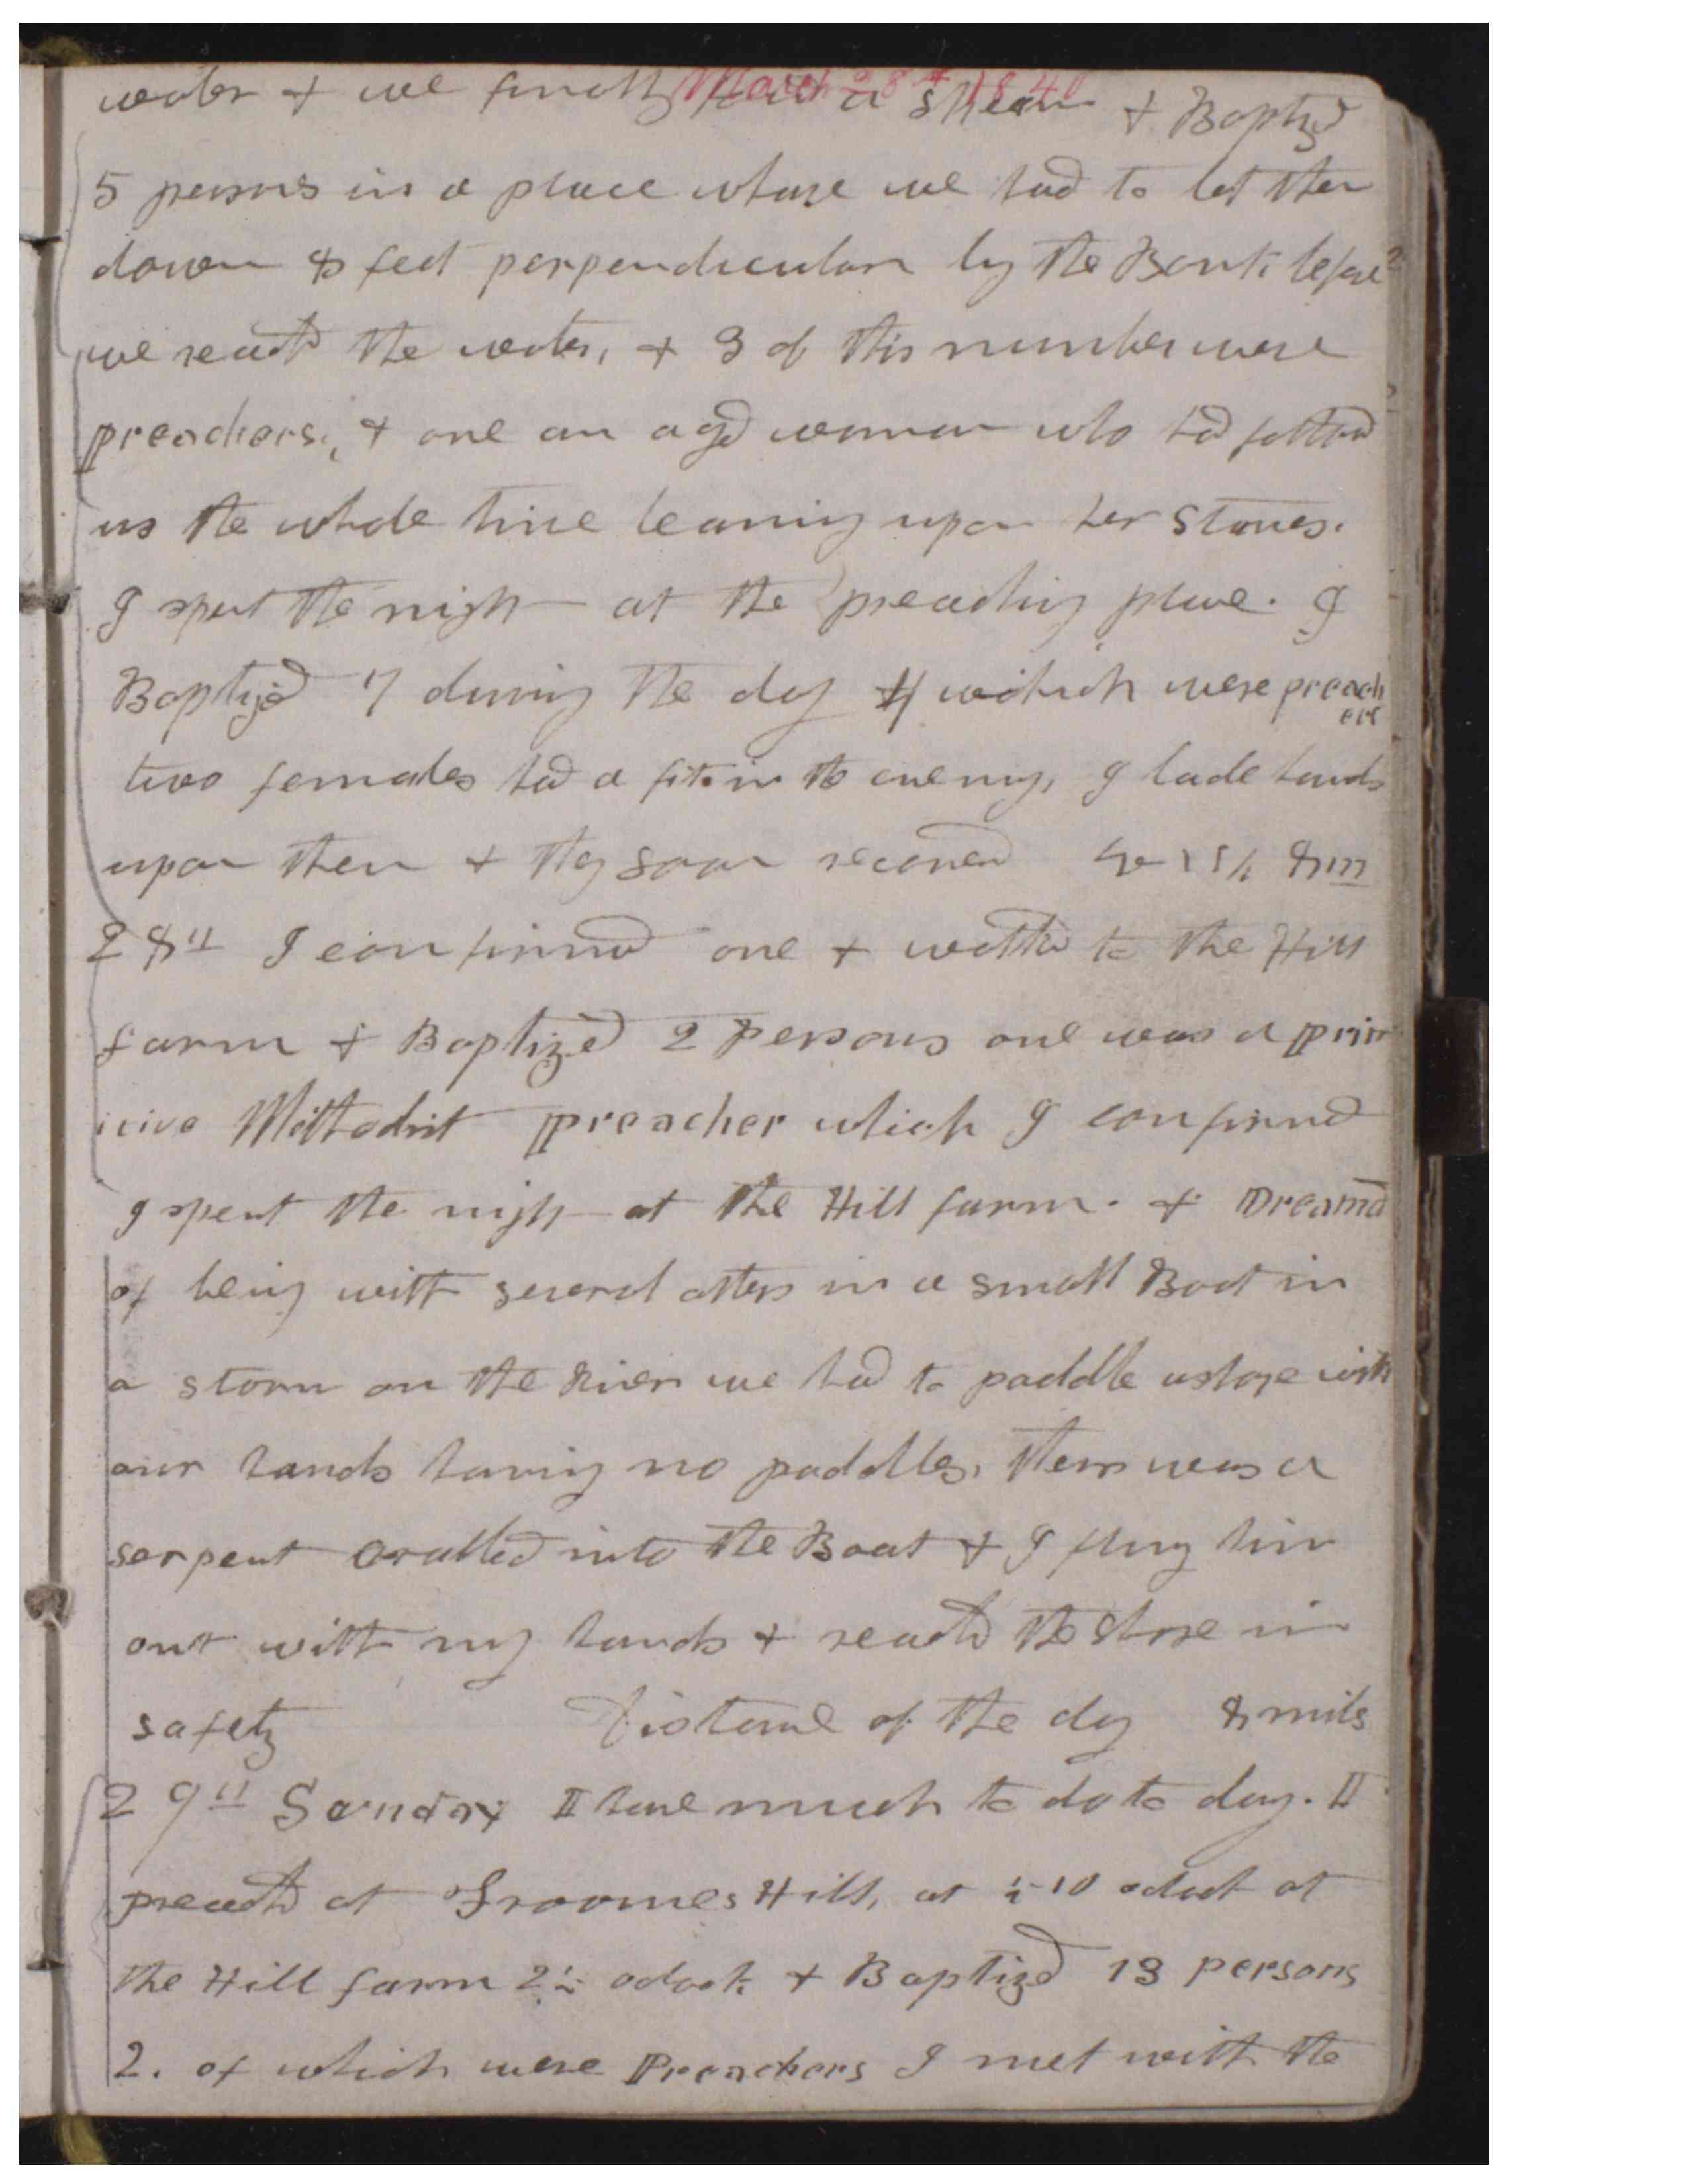 March 28th 1840
water & we finally found a stream & Baptized
5 persons in a place whare we had to let them
down 8 feet perpendicular by the Bank before
we reachd the water, & 3 of this number were
preachers, & one an aged woman who had followd
us the whole time leaning upon her staves.
I spent the night at the preaching place. I
Baptized 7 during the day 4 which were preach
ers
two females had a fit in the evening, I lade hands
upon them & they soon recoverd 8 m
28th I confirmed one & walked to the Hill
farm & Baptized 2 persons one was a prim
itive Methodist preacher which I confirmed
I spent the night at the Hill farm. & Dreamd
of being with several others in a small Boat in
a storm on the river we had to paddle ashore with
our hands having no paddles, there was a
serpent cralled into the Boat & I flung him
out with my hands & reachd the shore in
safety Distance of the day 8 miles
29th Sunday I have much to do to day. I
preachd at Froomes Hill, at ½ 10 oclock at
the Hill farm 2½ oclock & Baptized 13 persons
2. of which were Preachers I met with the